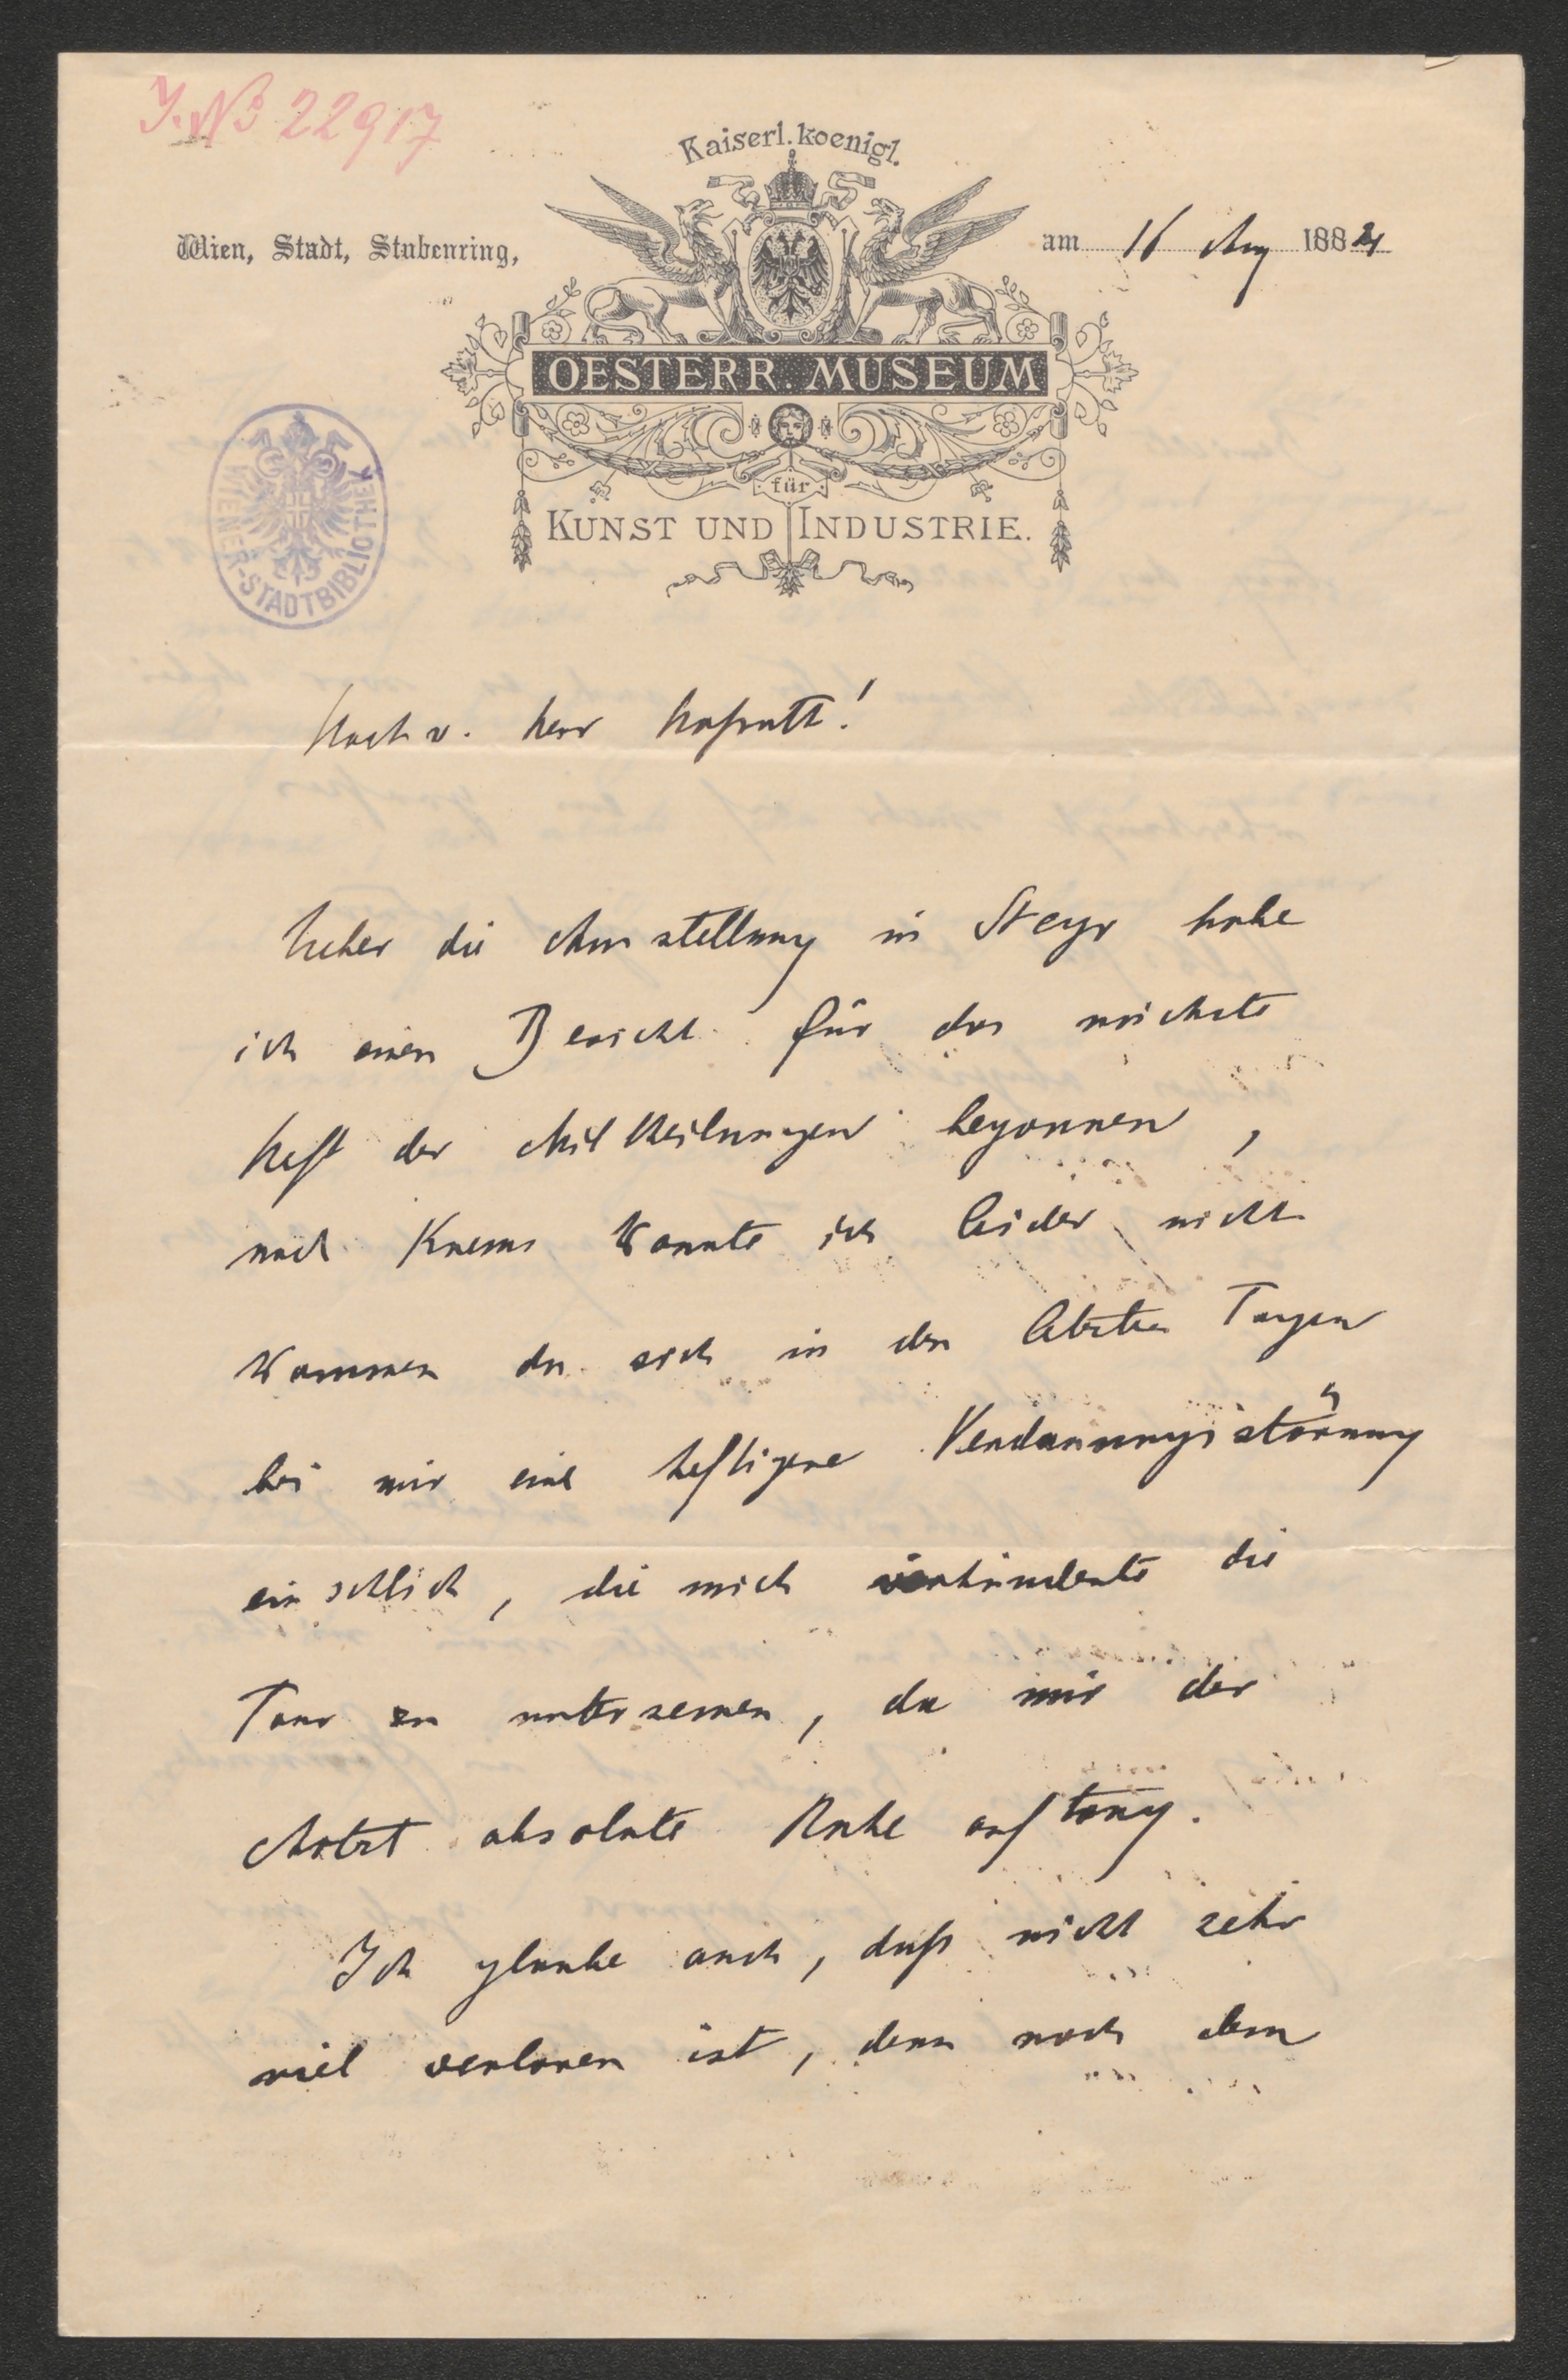 J. No 22917
Kaiserl. koenigl.
Wien, Stadt, Stubenring,
am 16 Aug 1884
OESTERR. MUSEUM
für
KUNST UND INDUSTRIE.
WIENER-STADTBIBLIOTHEK
Hoch v. Herr Hofrath!
Ueber die Ausstellung in Steyr habe
ich einen Bericht für das nächste
Heft der Mittheilungen begonnen,
nach Krems konnte ich leider nicht
kommen da sich in den letzten Tagen
bei mir eine heftigere Verdauungsstörung
einschlich, die mich verhinderte die
Tour zu unternemen, da mir der
Arzt absolute Ruhe auftrug.
Ich glaube auch, daß nicht sehr
viel verloren ist, denn nach dem